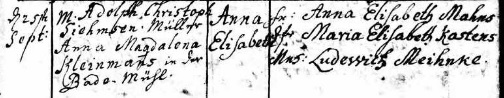 d 25st M. Adolph Christoph
Sept: Siehmsen. Müller
Anna Magdalena
Kleinmans in der
Bade-Mühl.
Anna
Elisabeth
Fr: Anna Elisabeth Mahns
Jfr Maria Elisabeth Kastens
Mns: Ludewith Meihnke.